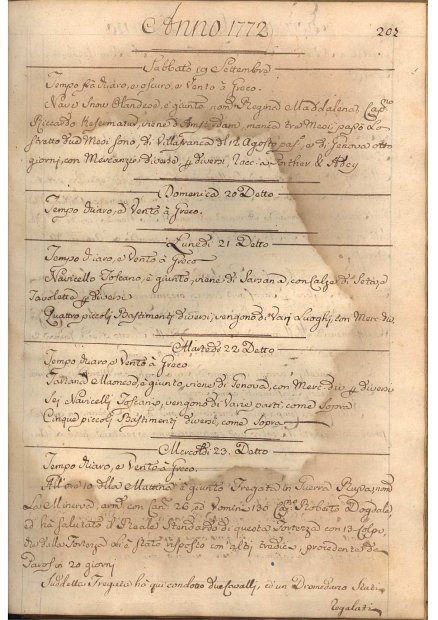 Anno 1772
Sabbato 19 Settembre
Tempo frà chiaro, e oscuro, e Vento à Greco.
Nave Snow Olandese, è giunto, nom: Regina Maddalena Cap.o
Riccardo viene d'Amsterdam, manca tre Mesi, passò lo
Stretto due Mesi sono, di Villafranca di 12 Agosto pas:, e di Genova otto
giorni, con Mercanzie diverse p diversi, racc: a Porther & Aley
Domenica 20 Detto
Tempo chiaro, e Vento à Greco.
Lunedi 21 Detto
Tempo chiaro, e Vento à Greco
Navicello Toscano, è giunto, viene di Sarzana, con Calze di Seta, e
Tavolette p diversi
Quattro piccoli Bastimenti diversi, vengono di Varj Luoghi, con Merc: div:
Martedi 22 Detto
Tempo chiaro, e Vento à Greco
Tartana è giunto, viene di Genova, con Merc: div: p diversi
Sei Navicelli Toscano, vengono di Varie parti, come Sopra
Cinque piccoli Bastimenti diversi, come Sopra
Mercoldi 23. Detto
Tempo chiaro, e Vento à Greco.
All'ore 10 della Mattina è giunto Fregata in Guerra Russa, nom:
La Minerva, arm: con Can: 26, ed Uomini 130 Cap: Roberto Dogdale
ed hà salutato il Reale Stendardo di questa Fortezza con 13 Colpi,
che dalla Fortezza li è stato risposto con altri tredici, procedente da
Paros in 20 giorni
Suddetta Fregata hà qui condotto due Cavalli, ed un Dromedario Stati
regalati